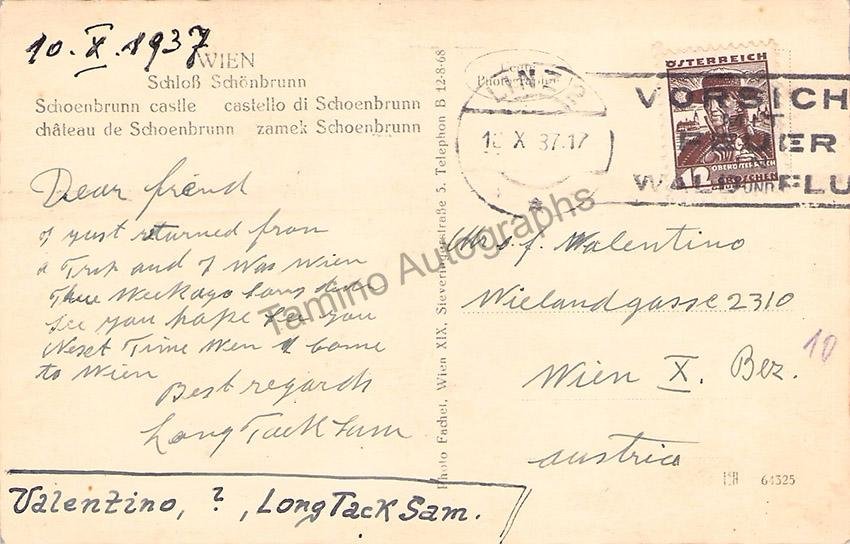 10. X. 1937
WIEN
Schloß Schönbrunn
Schoenbrunn castle castello di Schoenbrunn
château de Schoenbrunn zamek Schoenbrunn
Dear friend
I yust returned from
a Trip and I Was Wien
Three Weekago
see you hope see you
Nexet Time Wen I come
to Wien
Best regards
Long Tack Sam
Valentino, ? , Long Tack Sam.
Photo Fachet, Wien XIX, Sieveringerstraße 5. Telephon B 12-8-68
LINZ
X 37.17
ÖSTERREICH
12
OBERÖSTERREICH
GROSCHEN
VORSICH
MIT
FEUER
WALD UND FLU
Mrs. f. Valentino
Wielandgasse 2310
Wien X. Bez.
austria
10
64325
Tamino Autographs